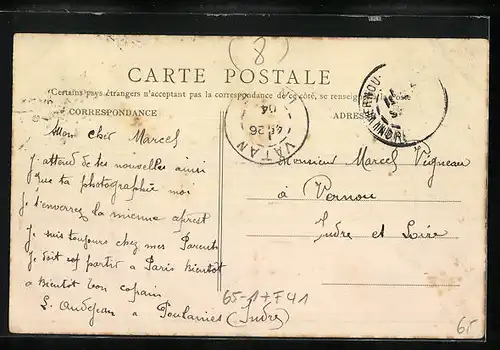 (8)
CARTE POSTALE
(Certains pays étrangers n'acceptant pas la correspondance de ce côté, se renseigner
CORRESPONDANCE
ADRES
Mon cher Marcel
J'attend de tes nouvelles ainsi
que ta photographie moi
Je t'enverrez la mienne aprest
Je suis toujours chez mes Parents
Je doit partir a Paris bientôt
a bientôt ton copain
L. a Poulaines (Indre)
VATAN
4 26
04
VERNOU
INDRE
Monsieur Marcel Vigneau
à Vernou
Indre et Loire
65